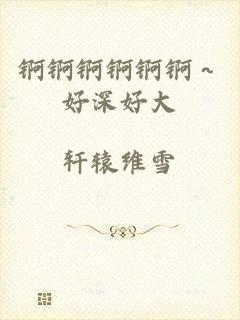 锕锕锕锕锕锕～
好深好大
轩辕维雪